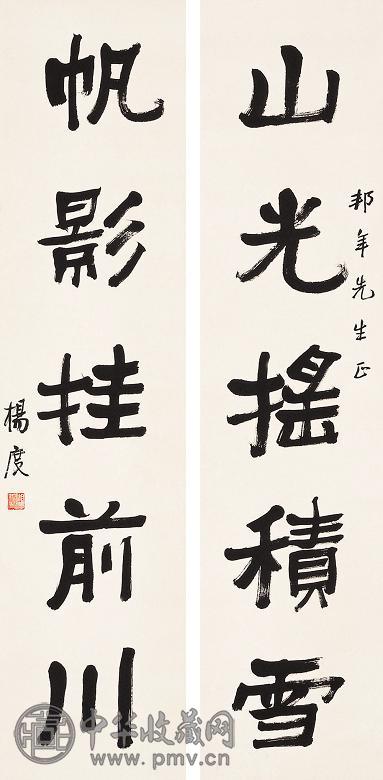 山光摇積雪
邦年先生正
帆影挂前川
楊度
中华收藏网
www.pmv.cn